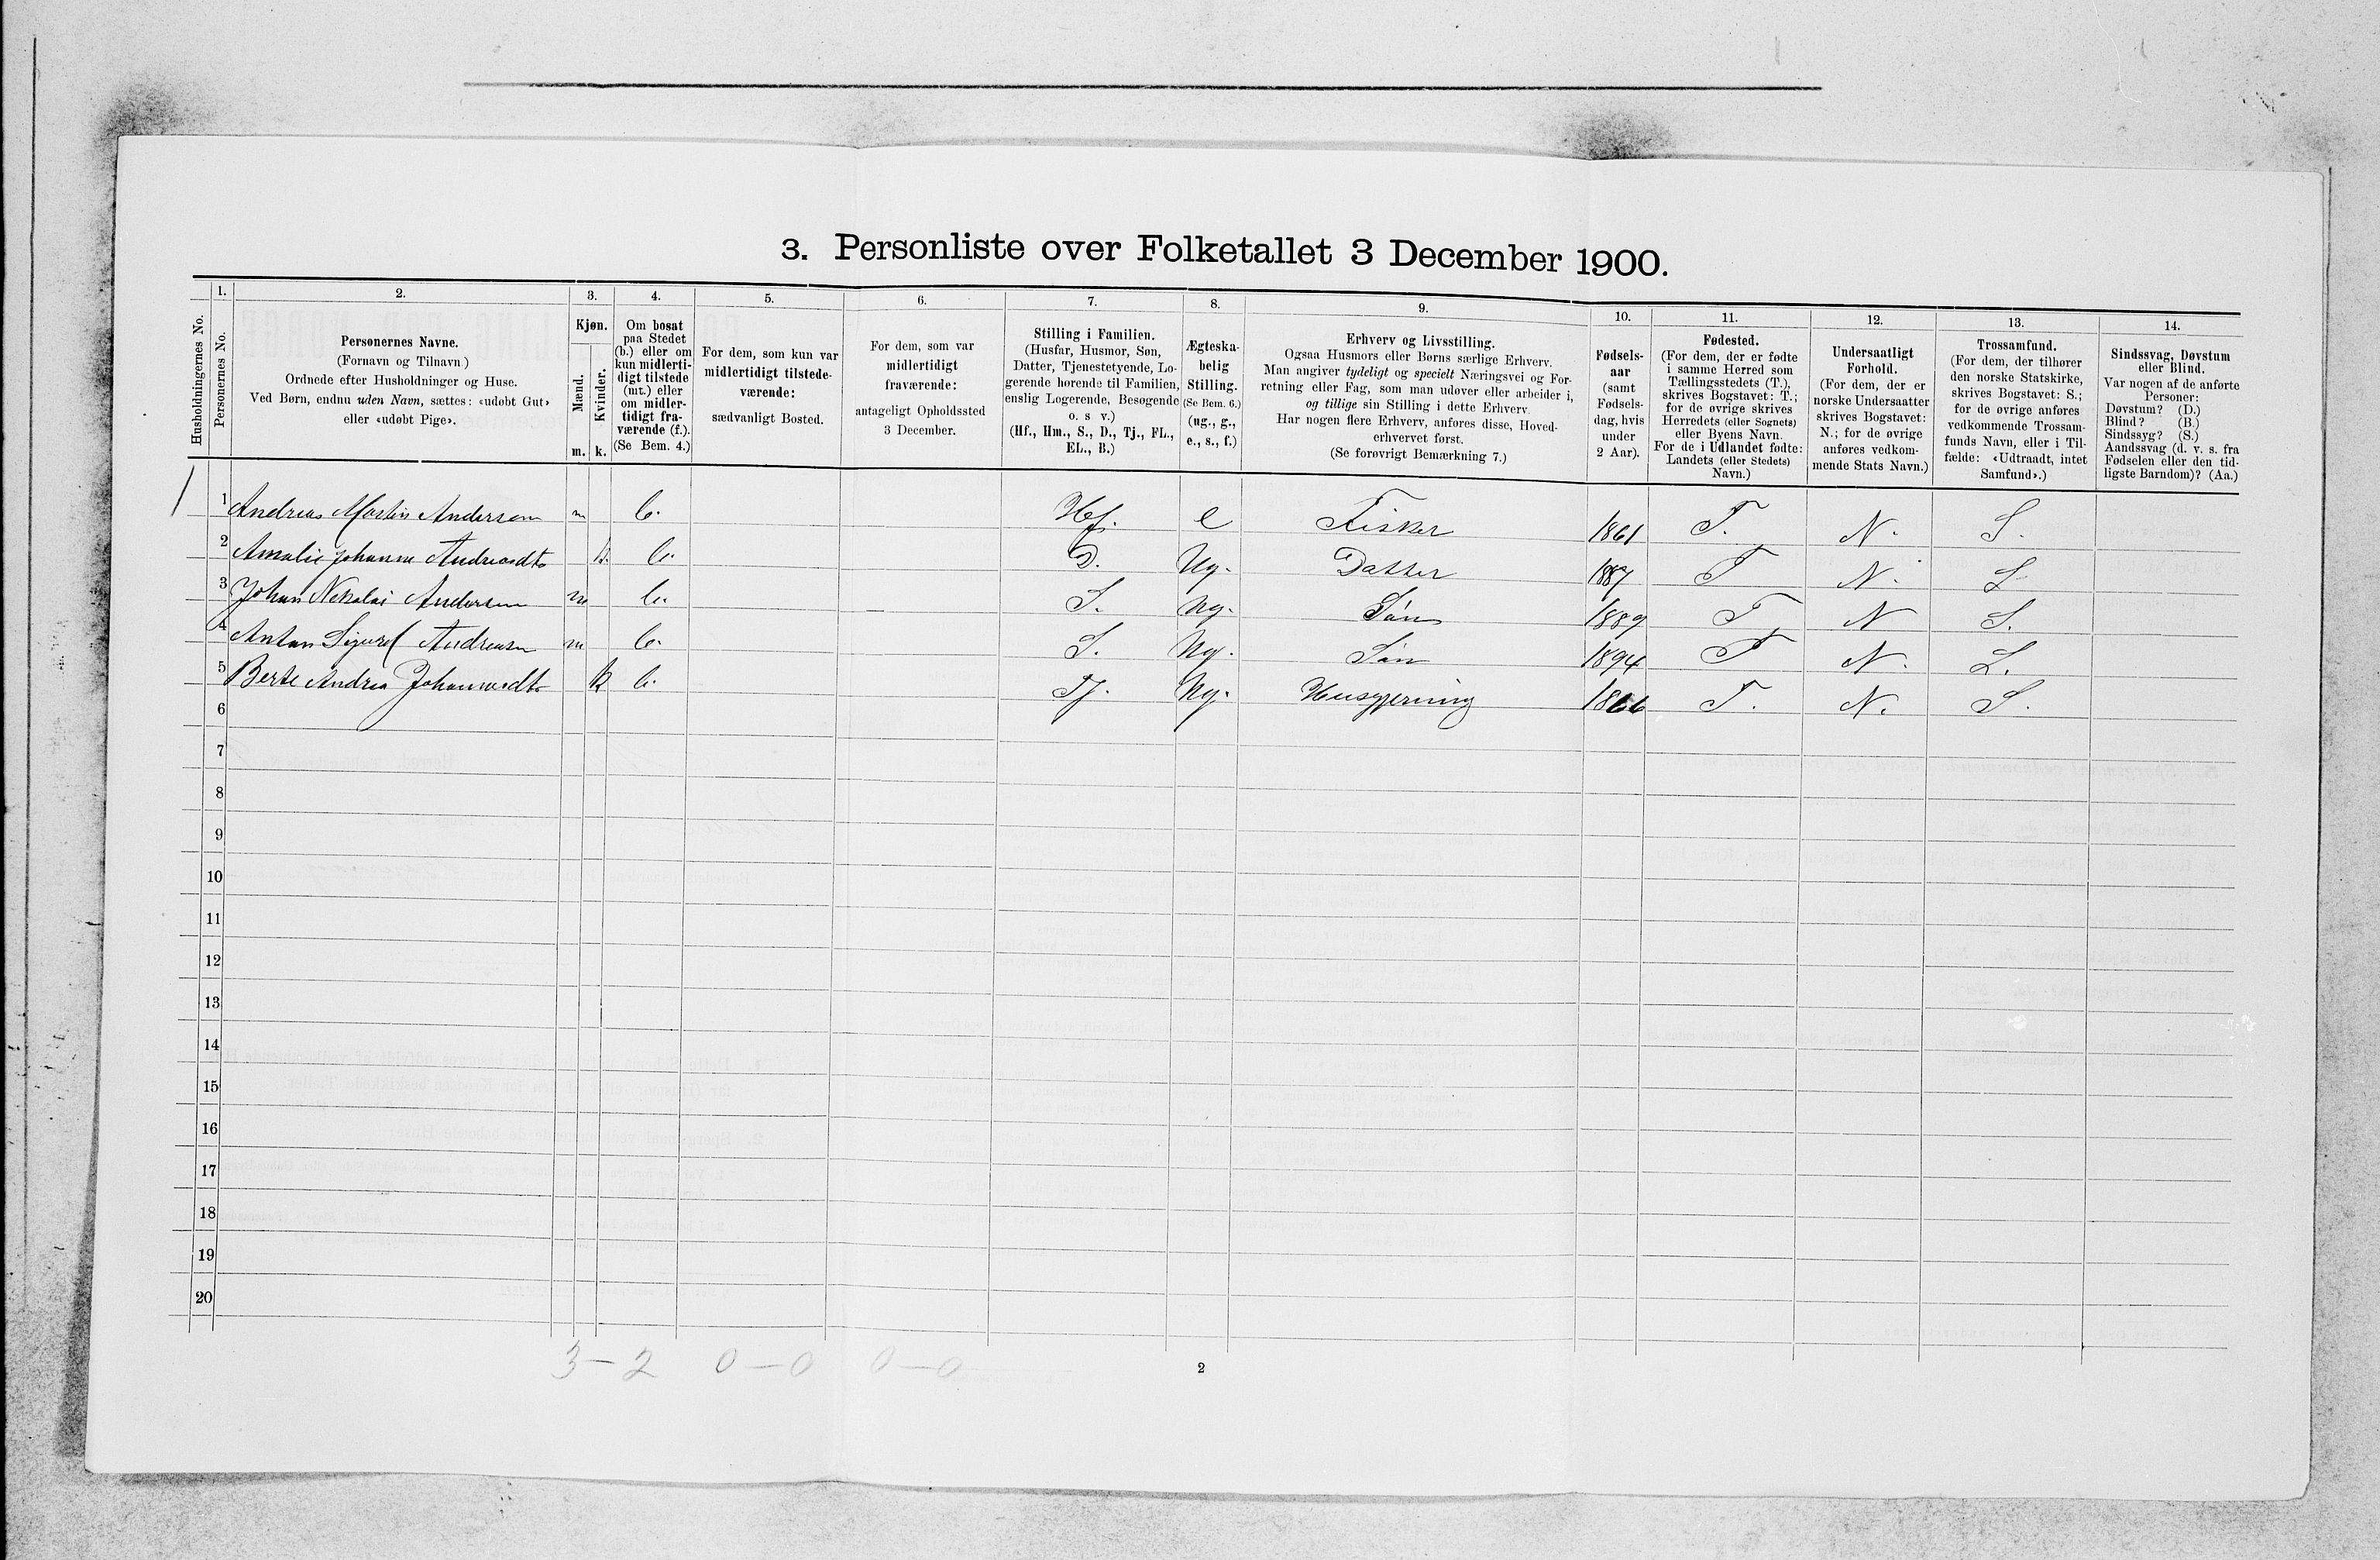 3. Personliste over Folketallet 3 December 1900.
1. 2. 3. 4. 5. 6. 7. 8. 9. 10. 11. 12. 13. 14.
Husholdningernes No.
Personernes No.
Personernes Navne.
(Fornavn og Tilnavn)
Ordnede efter Husholdninger og Huse.
Ved Børn, endnu uden Navn, sættes: «udøbt Gut»
eller «udøbt Pige».
Kjøn.
Mænd.
Kvinder.
m. k.
Om bosat
paa Stedet
(b.) eller om
kun midlerti-
digt tilstede
(mt.) eller
om midler-
tidigt fra-
værende (f.).
(Se Bem. 4.)
For dem, som kun var
midlertidigt tilstede-
værende:
sædvanligt Bosted.
For dem, som var
midlertidigt
fraværende:
antageligt Opholdssted
3 December.
Stilling i Familien.
(Husfar, Husmor, Søn,
Datter, Tjenestetyende, Lo-
gerende hørende til Familien,
enslig Logerende, Besøgende
o. s v.)
(Hf., Hm., S., D., Tj., FL.,
EL., B.)
Ægteska-
belig
Stilling.
(Se Bem. 6.)
(ug., g.,
e., s., f.)
Erhverv og Livsstilling.
Ogsaa Husmors eller Børns særlige Erhverv.
Man angiver tydeligt og specielt Næringsvei og For-
retning eller Fag, som man udøver eller arbeider i,
og tillige sin Stilling i dette Erhverv.
Har nogen flere Erhverv, anføres disse, Hoved-
erhvervet først.
(Se forøvrigt Bemærkning 7.)
Fødsels-
aar
(samt
Fødsels-
dag, hvis
under
2 Aar).
Fødested.
(For dem, der er fødte
i samme Herred som
Tællingsstedets (T.),
skrives Bogstavet: T.;
for de øvrige skrives
Herredets (eller Sognets)
eller Byens Navn.
For de i Udlandet fødte:
Landets (eller Stedets)
Navn.)
Undersaatligt
Forhold.
(For dem, der er
norske Undersaatter
skrives Bogstavet:
N.; for de øvrige
anføres vedkom-
mende Stats Navn.)
Trossamfund.
(For dem, der tilhører
den norske Statskirke,
skrives Bogstavet: S.;
for de øvrige anføres
vedkommende Trossam-
funds Navn, eller i Til-
fælde: «Udtraadt, intet
Samfund».)
Sindssvag, Døvstum
eller Blind.
Var nogen af de anførte
Personer:
Døvstum? (D.)
Blind? (B.)
Sindssyg? (S.)
Aandssvag (d. v. s. fra
Fødselen eller den tid-
ligste Barndom)? (Aa.)
1 1 Andreas Martin Andersen m b. Hf. e Fisker 1861 T. N. S.
2 Amalie Johanne Andreasdtr k. b. D. Ug. Datter 1887 T N. S
3 Johan Nekolai Andersen m b. S. Ug. Søn 1889 T N S.
4 Anton Sigurd Andreasen m b. S. Ug. Søn 1894 T N. S.
5 Berte Andrea Johannesdtr k b. Tj. Ug. Husgjerning 1866 T. N. S.
6
7
8
9
10
11
12
13
14
15
16
17
18
19
20
3 – 2 0 – 0 0 – 0
2